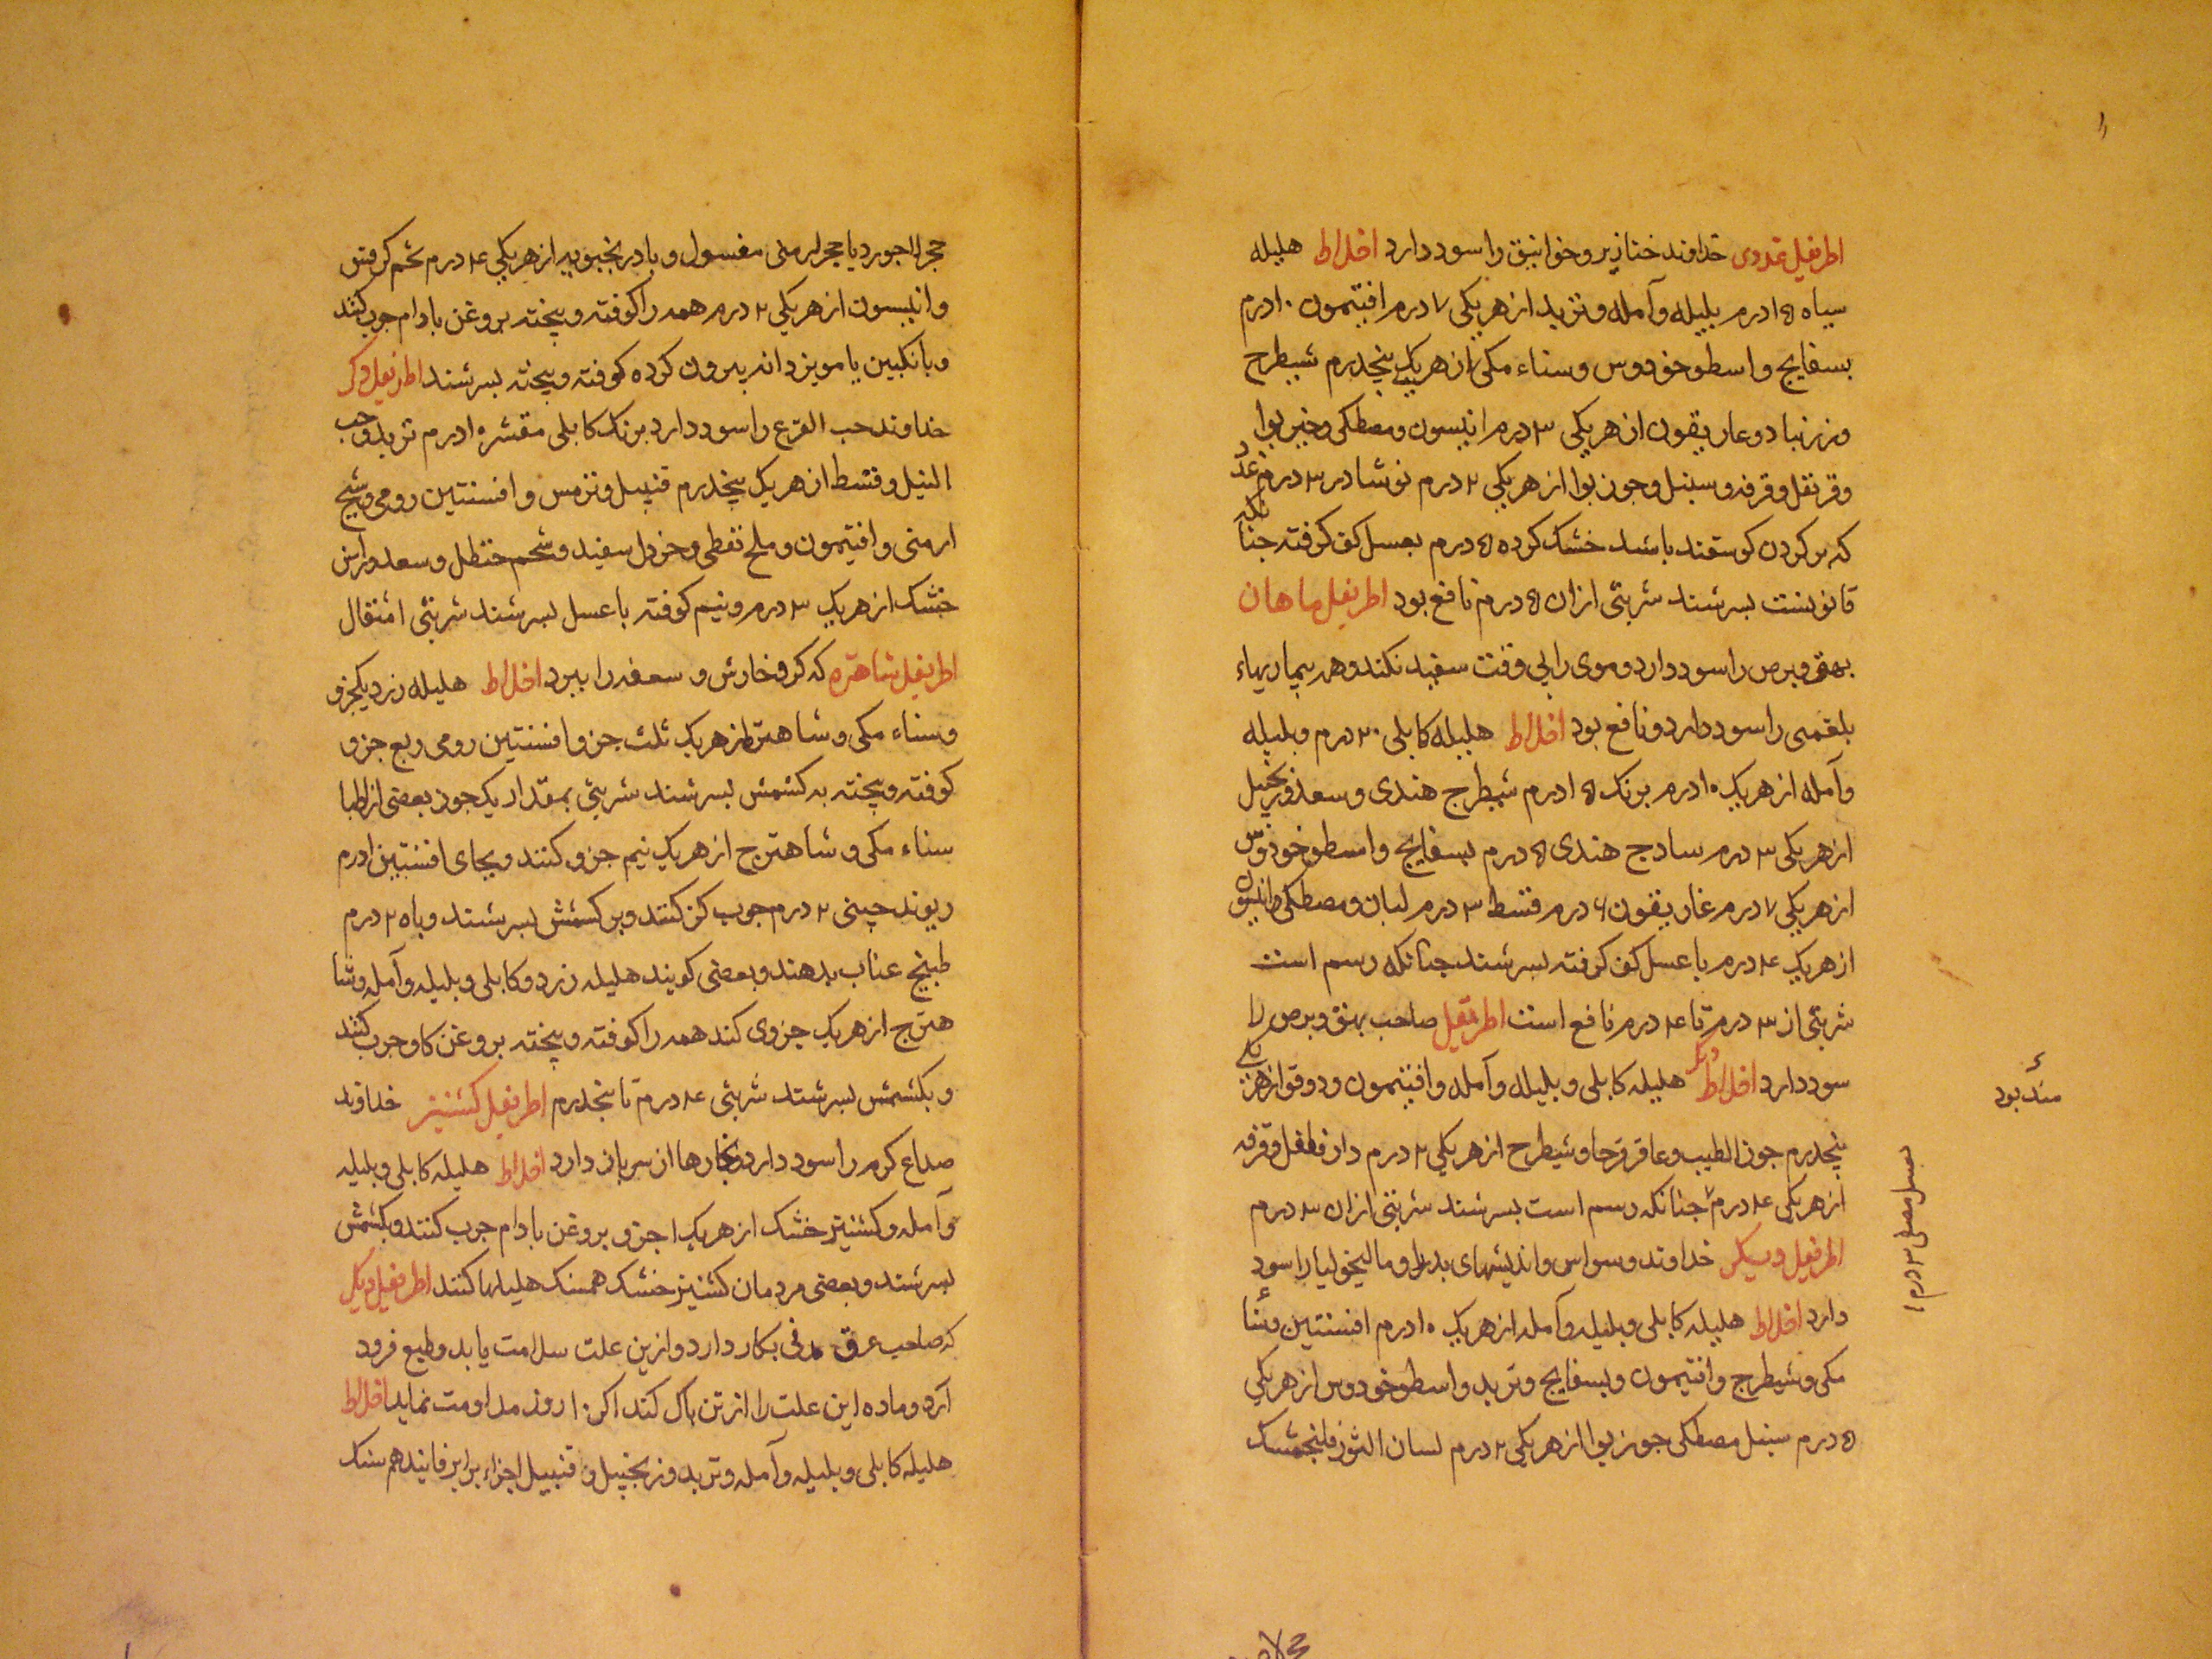 اطریفل غددی خداوند خنازیر و خوانیق را سود دارد اخلاط هلیله
سیاه ۱۵ درم بلیله و آمله و تربد از هر یکی ۷ درم افتیمون ۱۰ درم
بسفایج و اسطوخودوس و سناء مکی از هر یکی پنجدرم شیطرح
وزرنباد و غاریقون از هر یکی ۳ درم انیسون و مصطکی و خیربوا
و قرنفل و قرفه و سنبل و جوزبوا از هر یکی ۲ درم نوشادر ۳ درم غدد
که بر کردن کوسفند باشد خشک کرده ۵ درم بعسل کف کرفته جنانکه
قانونست بسرشند شربتی ازان ۵ درم نافع بود اطریفل ماهان
بهق و برص را سود دارد و موی را بی وقت سفید نکند و همه بیماریهاء
بلغمی را سود دارد و نافع بود اخلاط هلیله کابلی ۲۰ درم و بلیله
و آمله از هر یک ۱۰ درم برنک ۱۵ درم شیطرج هندی و سعد و زنجبیل
از هر یکی ۳ درم سادج هندی ۵ درم بسفایج و اسطوخودوس
از هر یکی ۷ درم غاریقون ۶ درم قسط ۳ درم لبان و مصطکی و انیسون
از هر یک ۴ درم با عسل کف کرفته بسرشند جنانکه رسم است
شربتی از ۳ درم تا ۴ درم نافع است اطریفل صاحب بهق و برص را
سود دارد اخلاط هلیله کابلی و بلیله و آمله و افتیمون و دوقو از هر یکی
پنجدرم جوز الطیب و عاقرقرحا و شیطرح از هر یکی ۲ درم دارفلفل و قرفه
از هر یکی ۴ درم جنانکه رسم است بسرشند شربتی ازان ۳ درم
اطریفل دیکر خداوند وسواس و اندیشهای بد را و مالیخولیا را سود
دارد اخلاط هلیله کابلی و بلیله و آمله از هر یک ۱۰ درم افسنتین و سناء
مکی و شیطرج و افتیمون و بسفایج و تربد و اسطوخودوس از هر یکی
۵ درم سنبل مصطکی جوزبوا از هر یکی ۲ درم لسان الثور فلنجمشک
بعسل مصفی ۳ درم
حجر لاجورد یا حجر ارمنی مغسول و بادرنجبویه از هر یکی ۴ درم تخم کرفس
و انیسون از هر یکی ۲ درم همه را کوفته و بیخته بروغن بادام جرب کنند
و بانکبین یا مویز دانه بیرون کرده کوفته و بیخته بسرشند اطریفل دکر
خداوند حب القرع را سود دارد برنک کابلی مقشر ۱۰ درم تربد و حب
النیل و قسط از هر یک پنجدرم قنبیل و ترمس و افسنتین رومی و شیح
ارمنی و افتیمون و ملح نفطی و خردل سفید و شحم حنظل و سعد و راسن
خشک از هر یک ۳ درم و نیم کوفته با عسل بسرشند شربتی ۱ مثقال
اطریفل شاهتره که کر و خارش و سعفه را ببرد اخلاط هلیله زرد یکجزو
و سناء مکی و شاهتره از هر یک ثلث جزو افسنتین رومی ربع جزو
کوفته و بیخته به کشمش بسرشند شربتی بمقدار یک جوز بعضی از اطبا
سناء مکی و شاهترج از هر یک نیم جزو کنند و بجای افسنتین ۱ درم
ریوند جینی ۲ درم جوب کز کنند و بر کشمش بسرشند و باه ۲ درم
طبیخ عناب بدهند و بعضی کویند هلیله زرد و کابلی و بلیله و آمله و شا
هترج از هر یک جزوی کند همه را کوفته و بیخته بروغن کاو جرب کنند
و بکشمش بسرشند شربتی ۴ درم تا پنجدرم اطریفل کشنیز خداوند
صداع کرم را سود دارد و بخارها از سر باز دارد اخلاط هلیله کابلی و بلیله
و آمله و کشنیز خشک از هر یک ۱ جزو بروغن بادام جرب کنند و بکشمش
بسرشند و بعضی مردمان کشنیز خشک همسنک هلیلها کنند اطریفل دیکر
که صاحب عرق مدنی بکار دارد و ازین علت سلامت یابد و طبع فرود
آرد و ماده این علت را از تن پاک کند اکر ۱۰ روز مداومت نماید اخلاط
هلیله کابلی و بلیله و آمله و تربد و زنجبیل و قنبیل اجزاء برابر فانیذ هم سنک